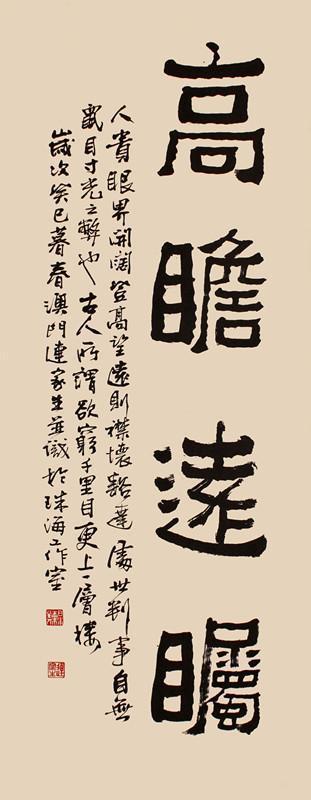 高瞻遠矚
人貴眼界開闊登高望遠則襟懷豁達處世判事自無
鼠目寸光之弊也古人所謂欲窮千里目更上一層樓
歲次癸巳暮春澳門連家生並識於珠海工作室